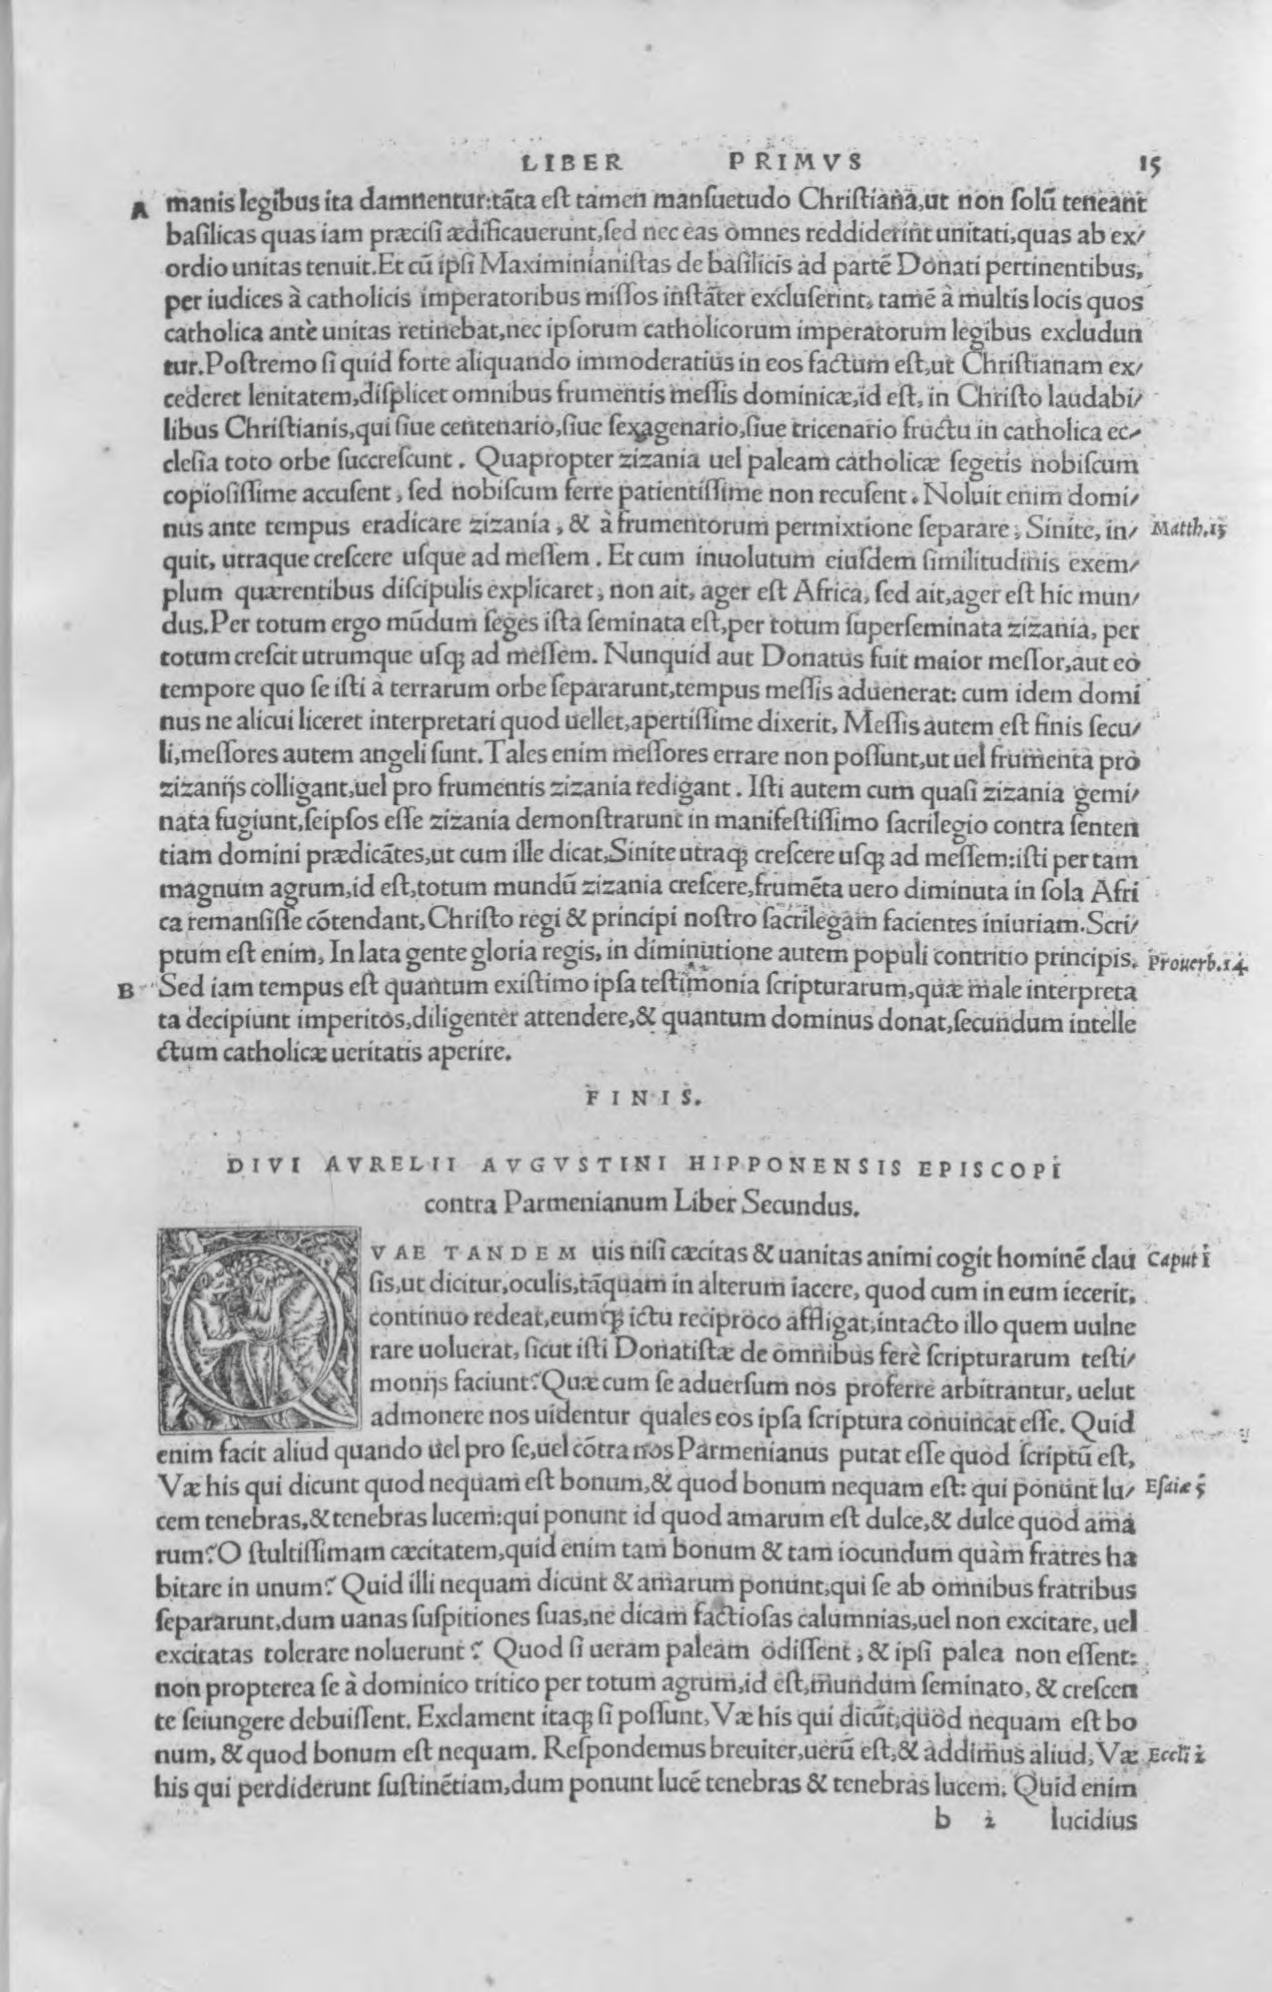 LIBER PRIMVS 15
A manis legibus ita damnentur:tãta eſt tamen manſuetudo Chriſtiana,ut non ſolũ teneant
baſilicas quas iam præciſi ædificauerunt,ſed nec eas omnes reddiderint unitati,quas ab ex/
ordio unitas tenuit.Et cũ ipſi Maximinianiſtas de baſilicis ad partẽ Donati pertinentibus,
per iudices à catholicis imperatoribus miſſos inſtãter excluſerint, tamẽ à multis locis quos
catholica antè unitas retinebat,nec ipſorum catholicorum imperatorum legibus excludun
tur.Poſtremo ſi quid forte aliquando immoderatius in eos factum eſt,ut Chriſtianam ex/
cederet lenitatem,diſplicet omnibus frumentis meſſis dominicæ,id eſt, in Chriſto laudabi/
libus Chriſtianis,qui ſiue centenario,ſiue ſexagenario,ſiue tricenario fructu in catholica ec/
cleſia toto orbe ſuccreſcunt. Quapropter zizania uel paleam catholicæ ſegetis nobiſcum
copioſiſſime accuſent, ſed nobiſcum ferre patientiſſime non recuſent. Noluit enim domi/
nus ante tempus eradicare zizania, & à frumentorum permixtione ſeparare, Sinite, in/ Matth.13
quit, utraque creſcere uſque ad meſſem. Et cum inuolutum eiuſdem ſimilitudinis exem/
plum quærentibus diſcipulis explicaret, non ait, ager eſt Africa, ſed ait,ager eſt hic mun/
dus.Per totum ergo mũdum ſeges iſta ſeminata eſt,per totum ſuperſeminata zizania, per
totum creſcit utrumque uſq; ad meſſem. Nunquid aut Donatus fuit maior meſſor,aut eo
tempore quo ſe iſti à terrarum orbe ſepararunt,tempus meſſis aduenerat: cum idem domi
nus ne alicui liceret interpretari quod uellet,apertiſſime dixerit, Meſſis autem eſt finis ſecu/
li,meſſores autem angeli ſunt.Tales enim meſſores errare non poſſunt,ut uel frumenta pro
zizanijs colligant,uel pro frumentis zizania redigant. Iſti autem cum quaſi zizania gemi/
nata fugiunt,ſeipſos eſſe zizania demonſtrarunt in manifeſtiſſimo ſacrilegio contra ſenten
tiam domini prædicãtes,ut cum ille dicat,Sinite utraq; creſcere uſq; ad meſſem:iſti per tam
magnum agrum,id eſt,totum mundũ zizania creſcere,frumẽta uero diminuta in ſola Afri
ca remanſiſſe cõtendant,Chriſto regi & principi noſtro ſacrilegam facientes iniuriam.Scri/
ptum eſt enim, In lata gente gloria regis, in diminutione autem populi contritio principis. Prouerb.14
B Sed iam tempus eſt quantum exiſtimo ipſa teſtimonia ſcripturarum,quæ male interpreta
ta decipiunt imperitos,diligenter attendere,& quantum dominus donat,ſecundum intelle
ctum catholicæ ueritatis aperire.
FINIS.
DIVI AVRELII AVGVSTINI HIPPONENSIS EPISCOPI
contra Parmenianum Liber Secundus.
QVAE TANDEM uis niſi cæcitas & uanitas animi cogit hominẽ clau Caput i
ſis,ut dicitur,oculis,tãquam in alterum iacere, quod cum in eum iecerit,
continuo redeat,eumq́; ictu reciproco affligat,intacto illo quem uulne
rare uoluerat, ſicut iſti Donatiſtæ de omnibus ferè ſcripturarum teſti/
monijs faciunt? Quæ cum ſe aduerſum nos proferre arbitrantur, uelut
admonere nos uidentur quales eos ipſa ſcriptura conuincat eſſe. Quid
enim facit aliud quando uel pro ſe,uel cõtra nos Parmenianus putat eſſe quod ſcriptũ eſt,
Væ his qui dicunt quod nequam eſt bonum,& quod bonum nequam eſt: qui ponunt lu/ Eſaiæ 5
cem tenebras,& tenebras lucem:qui ponunt id quod amarum eſt dulce,& dulce quod ama
rum? O ſtultiſſimam cæcitatem,quid enim tam bonum & tam iocundum quàm fratres ha
bitare in unum? Quid illi nequam dicunt & amarum ponunt,qui ſe ab omnibus fratribus
ſepararunt,dum uanas ſuſpitiones ſuas,ne dicam factioſas calumnias,uel non excitare, uel
excitatas tolerare noluerunt? Quod ſi ueram paleam odiſſent, & ipſi palea non eſſent:
non propterea ſe à dominico tritico per totum agrum,id eſt,mundum ſeminato, & creſcen
te ſeiungere debuiſſent. Exclament itaq; ſi poſſunt, Væ his qui dicũt,quod nequam eſt bo
num, & quod bonum eſt nequam. Reſpondemus breuiter,uerũ eſt,& addimus aliud, Væ Eccli 2
his qui perdiderunt ſuſtinẽtiam,dum ponunt lucẽ tenebras & tenebras lucem. Quid enim
b 2 lucidius